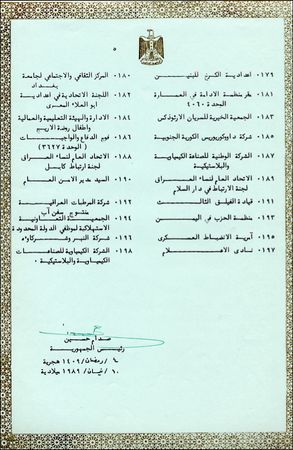 ٥
١٧٩- اعدادية الكرخ للبنين
١٨٠- المركز الثقافي والاجتماعي لجامعة بغداد
١٨١- مقر منظمة الادامة في العمارة الوحدة ٤٠٦٠
١٨٢- اللجنة الاتحادية في اعدادية ابو العلاء المعري
١٨٣- الجمعية الخيرية للسريان الارثوذكس
١٨٤- الادارة والهيئة التعليمية والعمالية واطفال روضة الاريج
١٨٥- شركة داوو كوربوريس الكورية الجنوبية
١٨٦- فوج الدفاع والواجبات (الوحدة ٣٦٢٧)
١٨٧- الشركة الوطنية للصناعة الكيمياوية والبلاستيكية
١٨٨- الاتحاد العام لنساء العراق لجنة ارتباط كابل
١٨٩- الاتحاد العام لنساء العراق لجنة الارتباط في دار السلام
١٩٠- السيد مدير الامن العام
١٩١- قيادة الفيلق الثالث
١٩٢- شركة المرطبات العراقية منتوج سفن آب
١٩٣- منظمة الحزب في اليمن
١٩٤- الجمعية التعاونية الاستهلاكية لموظفي الدولة المحدودة
١٩٥- آمرية الانضباط العسكري
١٩٦- شركة النبر وشركاوه
١٩٧- نادي الاعلام
١٩٨- الشركة الكيمياوية للصناعات الكيمياوية والبلاستيكية
صدام حسين
رئيس الجمهورية
٤ / رمضان / ١٤٠٩ هجرية
١٠ / نيسان / ١٩٨٩ ميلادية